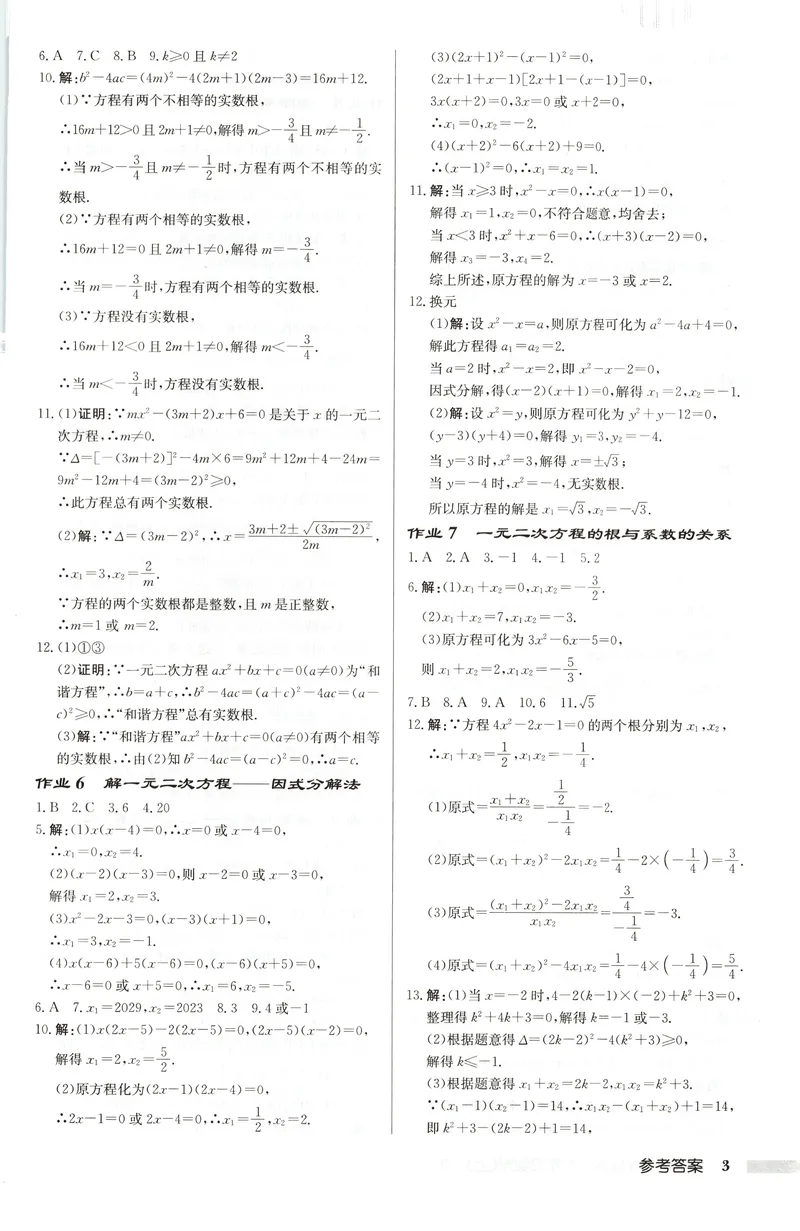 6.A 7.C 8.B 9.k≥0且k≠2
10.解:b²-4ac=(4m)²-4(2m+1)(2m-3)=16m+12.
(1)∵方程有两个不相等的实数根,
∴16m+12>0且2m+1≠0,解得m>-3/4且m≠-1/2.
∴当m>-3/4且m≠-1/2时,方程有两个不相等的实
数根.
(2)∵方程有两个相等的实数根,
∴16m+12=0且2m+1≠0,解得m=-3/4.
∴当m=-3/4时,方程有两个相等的实数根.
(3)∵方程没有实数根,
∴16m+12<0且2m+1≠0,解得m<-3/4.
∴当m<-3/4时,方程没有实数根.
11.(1)证明:∵mx²-(3m+2)x+6=0是关于x的一元二
次方程,∴m≠0.
∵Δ=[-(3m+2)]²-4m×6=9m²+12m+4-24m=
9m²-12m+4=(3m-2)²≥0,
∴此方程总有两个实数根.
(2)解:∵Δ=(3m-2)²,∴x=(3m+2±√(3m-2)²)/2m,
∴x₁=3,x₂=2/m.
∵方程的两个实数根都是整数,且m是正整数,
∴m=1或m=2.
12.(1)①③
(2)证明:∵一元二次方程ax²+bx+c=0(a≠0)为“和
谐方程”,∴b=a+c,∴b²-4ac=(a+c)²-4ac=(a-
c)²≥0,∴“和谐方程”总有实数根.
(3)解:∵“和谐方程”ax²+bx+c=0(a≠0)有两个相等
的实数根,∴由(2)知b²-4ac=(a-c)²=0,∴a=c.
作业6 解一元二次方程——因式分解法
1.B 2.C 3.6 4.20
5.解:(1)x(x-4)=0,∴x=0或x-4=0,
∴x₁=0,x₂=4.
(2)(x-2)(x-3)=0,则x-2=0或x-3=0,
解得x₁=2,x₂=3.
(3)x²-2x-3=0,(x-3)(x+1)=0,
∴x₁=3,x₂=-1.
(4)x(x-6)+5(x-6)=0,(x-6)(x+5)=0,
∴x-6=0或x+5=0,∴x₁=6,x₂=-5.
6.A 7.x₁=2029,x₂=2023 8.3 9.4或-1
10.解:(1)x(2x-5)-2(2x-5)=0,(2x-5)(x-2)=0,
解得x₁=2,x₂=5/2.
(2)原方程化为(2x-1)(2x-4)=0,
∴2x-1=0或2x-4=0,∴x₁=1/2,x₂=2.
(3)(2x+1)²-(x-1)²=0,
(2x+1+x-1)[2x+1-(x-1)]=0,
3x(x+2)=0,3x=0或x+2=0,
∴x₁=0,x₂=-2.
(4)(x+2)²-6(x+2)+9=0.
∴(x-1)²=0,∴x₁=x₂=1.
11.解:当x≥3时,x²-x=0,∴x(x-1)=0,
解得x₁=1,x₂=0,不符合题意,均舍去;
当x<3时,x²+x-6=0,∴(x+3)(x-2)=0,
解得x₃=-3,x₄=2.
综上所述,原方程的解为x=-3或x=2.
12.换元
(1)解:设x²-x=a,则原方程可化为a²-4a+4=0,
解此方程得a₁=a₂=2.
当a=2时,x²-x=2,即x²-x-2=0,
因式分解,得(x-2)(x+1)=0,解得x₁=2,x₂=-1.
(2)解:设x²=y,则原方程可化为y²+y-12=0,
(y-3)(y+4)=0,解得y₁=3,y₂=-4.
当y=3时,x²=3,解得x=±√3;
当y=-4时,x²=-4,无实数根.
所以原方程的解是x₁=√3,x₂=-√3.
作业7 一元二次方程的根与系数的关系
1.A 2.A 3.-1 4.-1 5.2
6.解:(1)x₁+x₂=0,x₁x₂=-3/2.
(2)x₁+x₂=7,x₁x₂=-3.
(3)原方程可化为3x²-6x-5=0,
则x₁+x₂=2,x₁x₂=-5/3.
7.B 8.A 9.A 10.6 11.√5
12.解:∵方程4x²-2x-1=0的两个根分别为x₁,x₂,
∴x₁+x₂=1/2,x₁x₂=-1/4.
(1)原式=(x₁+x₂)/(x₁x₂)=(1/2)/(-1/4)=-2.
(2)原式=(x₁+x₂)²-2x₁x₂=1/4-2×(-1/4)=3/4.
(3)原式=((x₁+x₂)²-2x₁x₂)/(x₁x₂)=(3/4)/(-1/4)=-3.
(4)原式=(x₁+x₂)²-4x₁x₂=1/4-4×(-1/4)=5/4.
13.解:(1)当x=-2时,4-2(k-1)×(-2)+k²+3=0,
整理得k²+4k+3=0,解得k=-1或-3.
(2)根据题意得Δ=(2k-2)²-4(k²+3)≥0,
解得k≤-1.
(3)根据题意得x₁+x₂=2k-2,x₁x₂=k²+3.
∵(x₁-1)(x₂-1)=14,∴x₁x₂-(x₁+x₂)+1=14,
即k²+3-(2k-2)+1=14,
参考答案 3